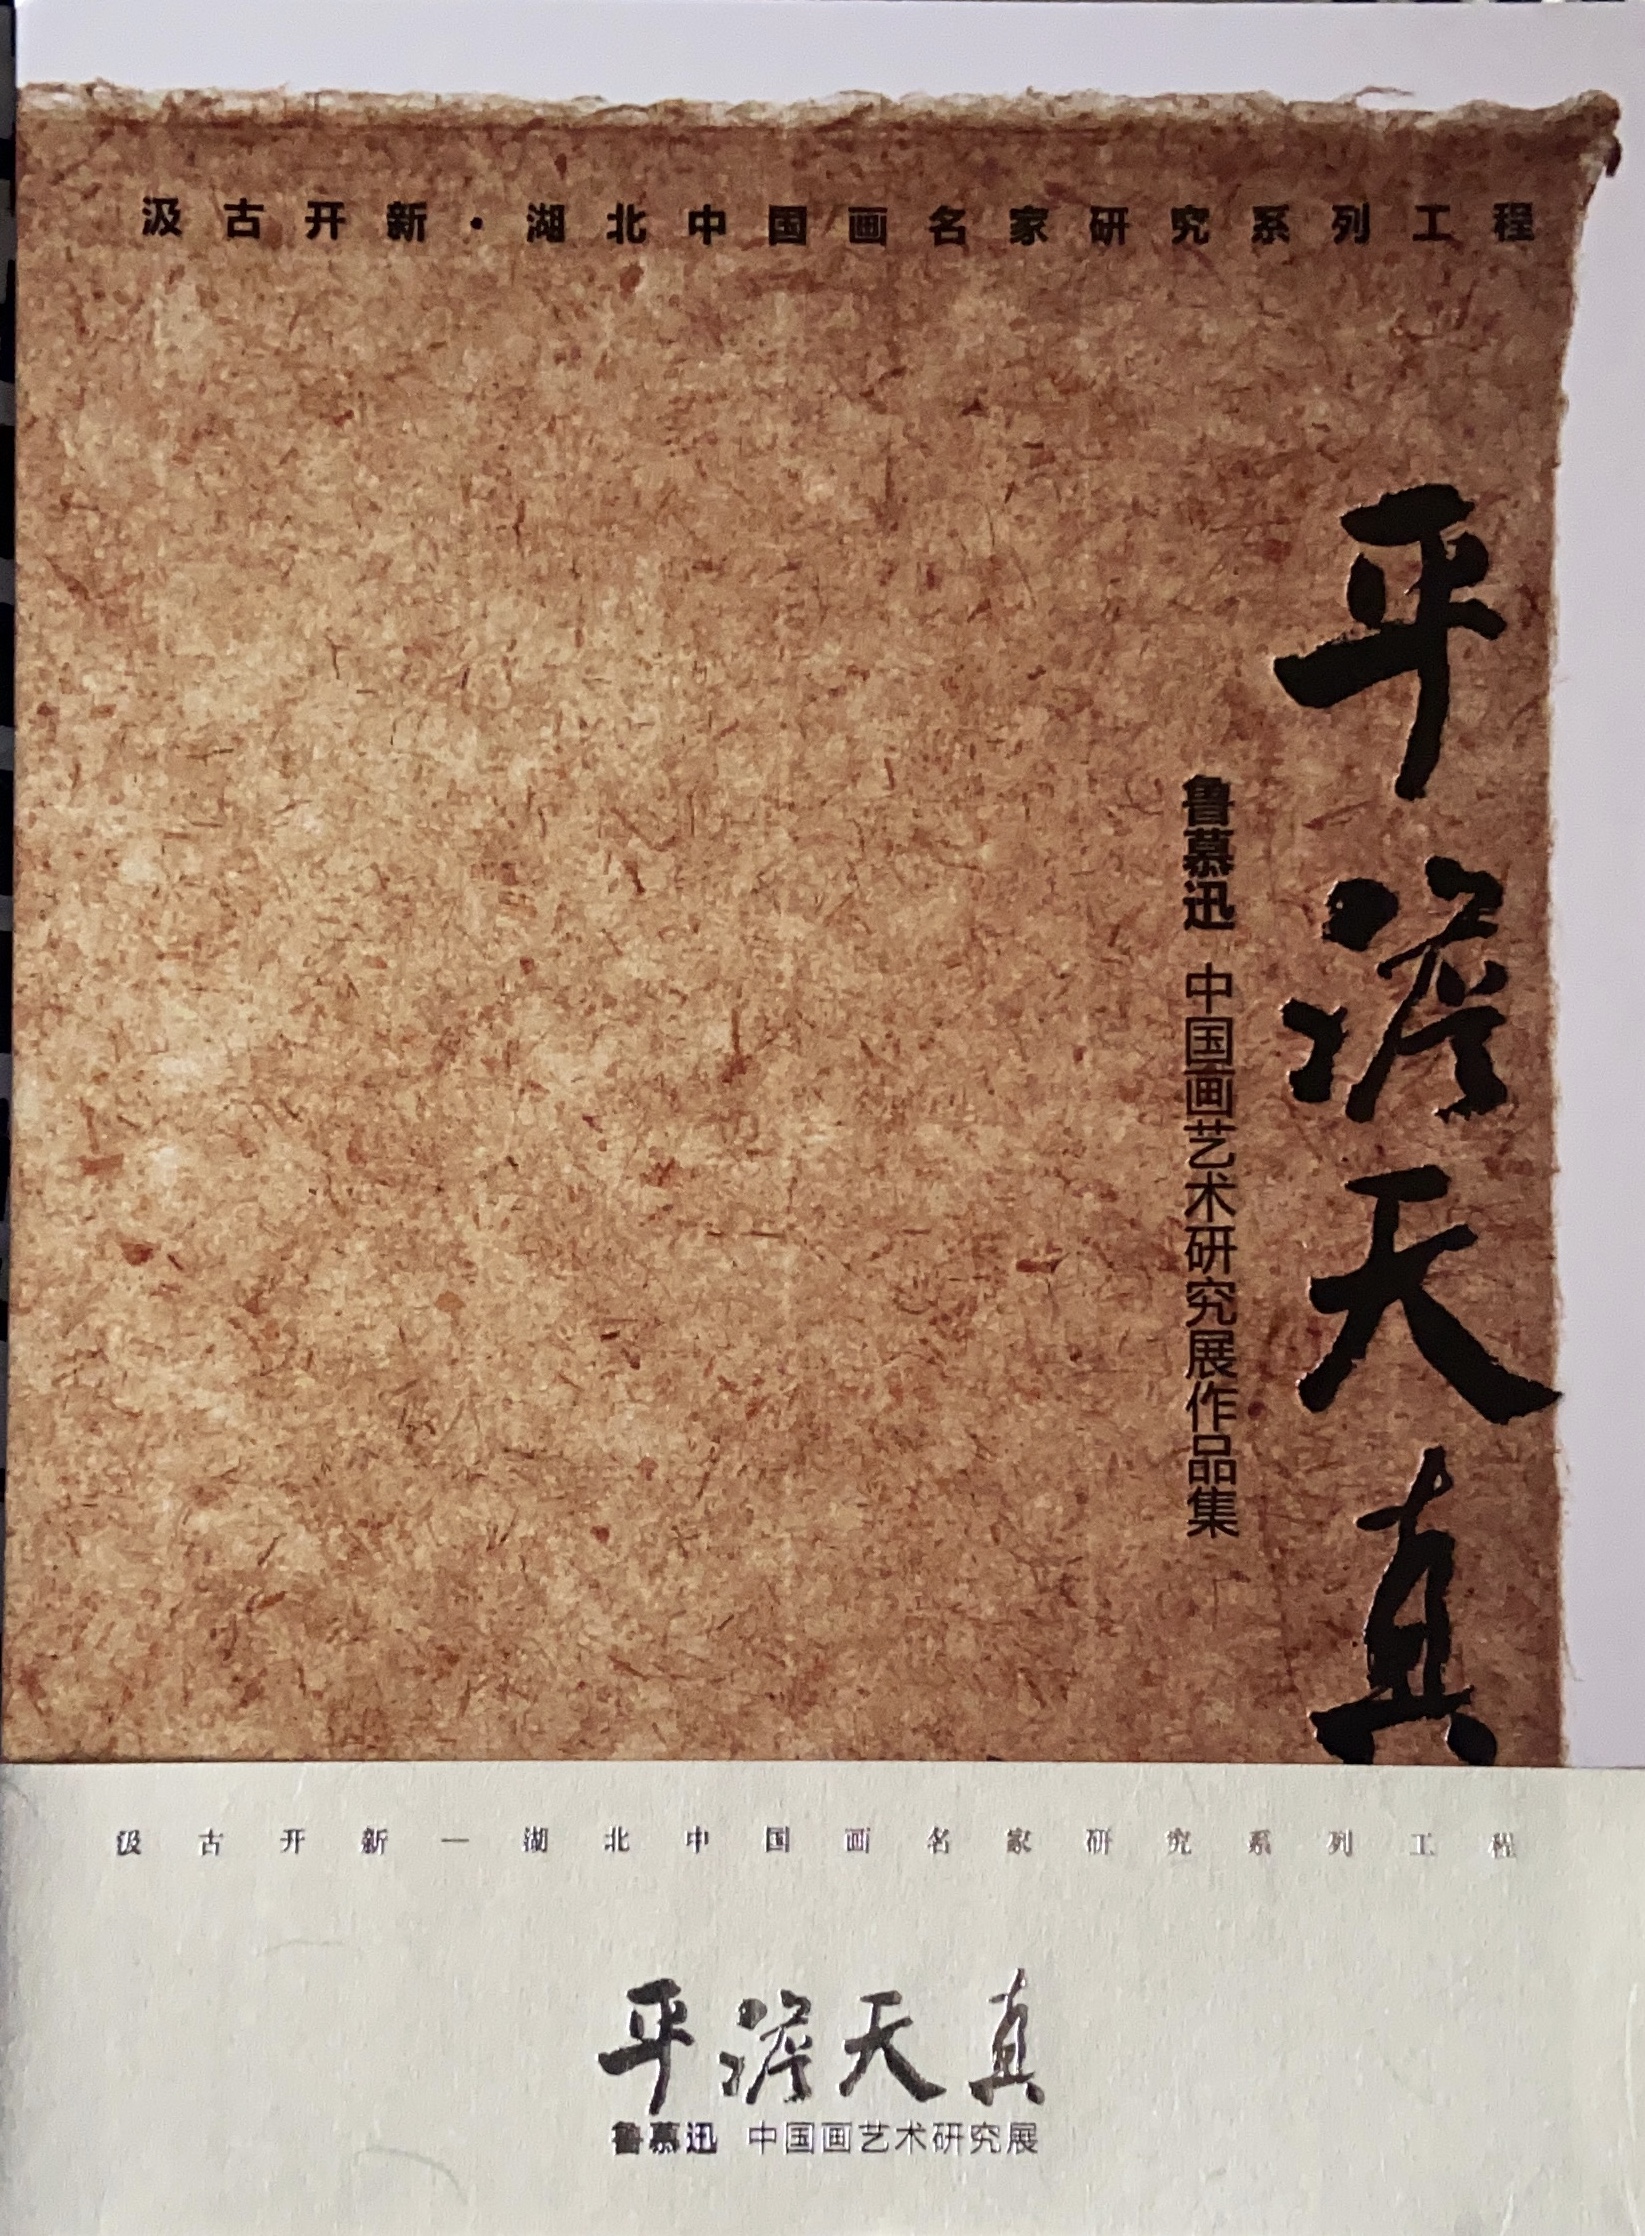 汲古开新·湖北中国画名家研究系列工程
平澹天真
鲁慕迅 中国画艺术研究展作品集
汲古开新—湖北中国画名家研究系列工程
平澹天真
鲁慕迅 中国画艺术研究展